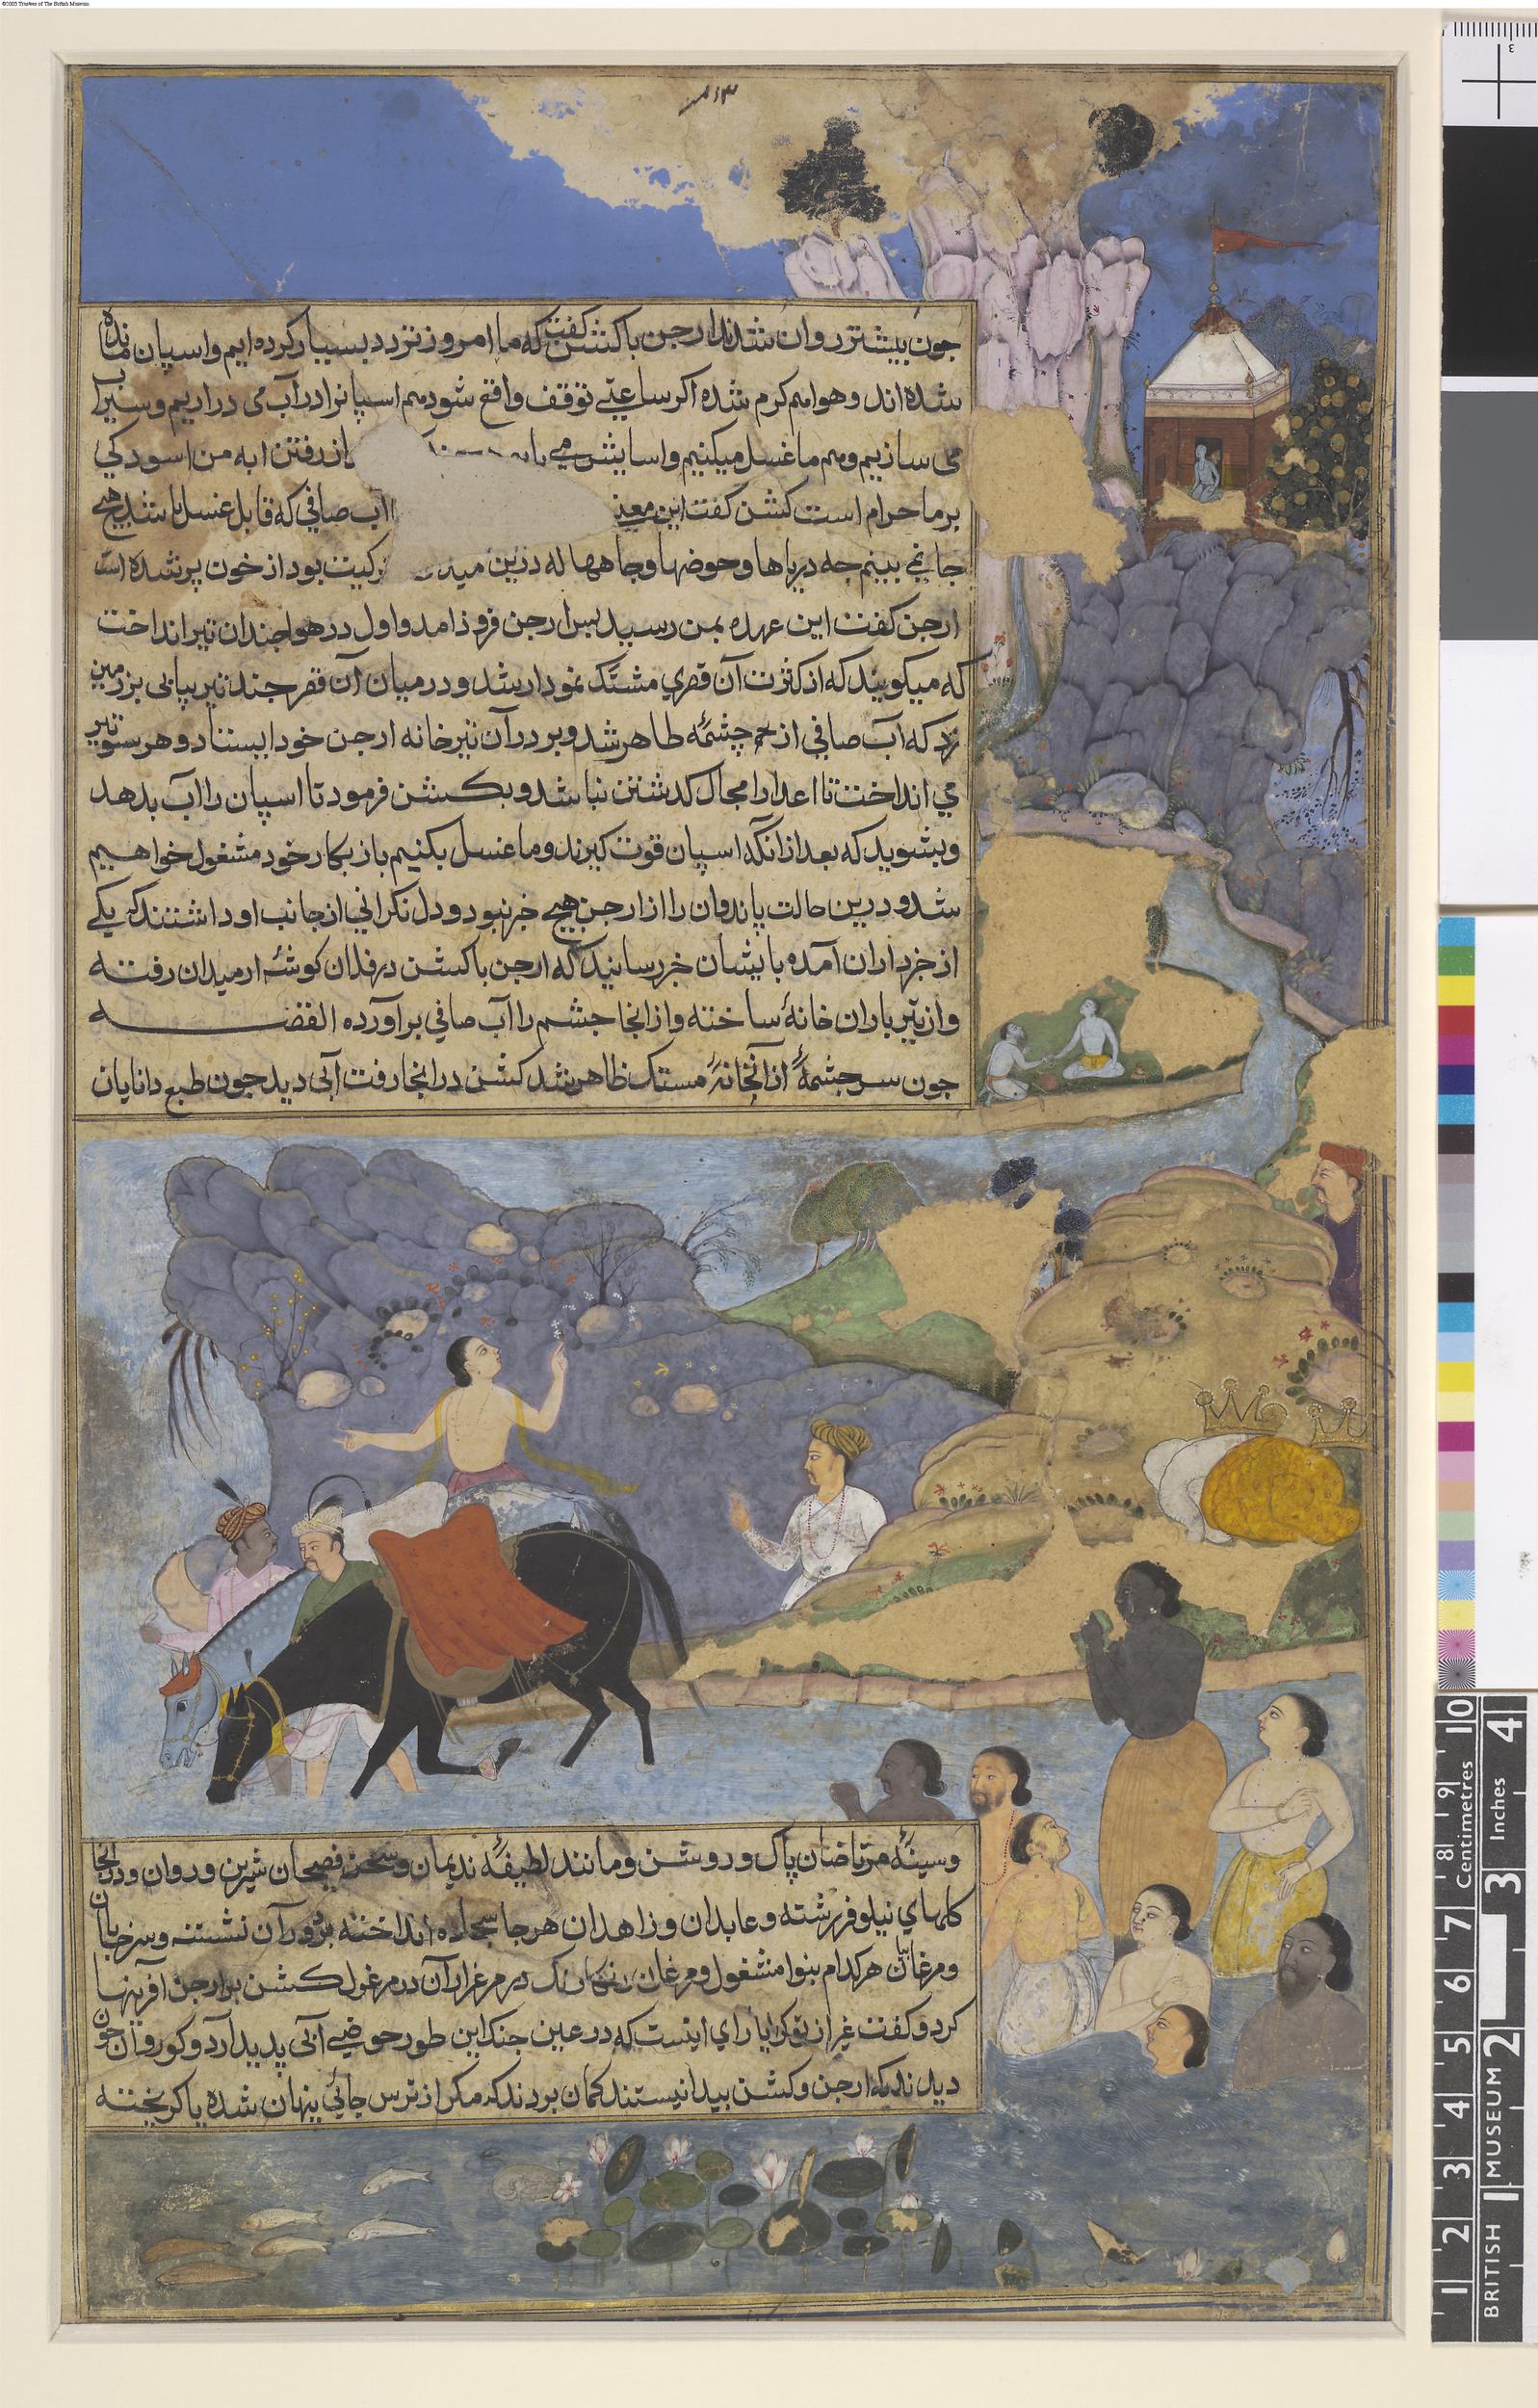 ©2003 Trustees of The British Museum
چون پیشتر روان شدند ارجن با کشن گفت که ما امروز تردد بسیار کرده ایم و اسپان مانده
شده اند و هوا هم کرم شده اکر ساعتی توقف واقع شود هم اسپانرا در آب می دراریم و سیراب
می سازیم و هم ما غسل میکنیم و اسایش می از رفتن ابه من اسودکی
بر ما حرام است کشن کفت این معنی اب صافی که قابل غسل باشد هیچ
جا نمی بینم چه دریاها و حوضها و چاهها که درین بود از خون پر شده است
ارجن کفت این عهده بمن رسید پس ارجن فرود امد و اول در هوا چندان تیر انداخت
که میکویند که از کثرت آن قصری مشبک نمودار شد و در میان آن قصر چند تیر پیاپی بر زمین
زد که آب صافی از چشمه ظاهر شد و بر در آن تیرخانه ارجن خود ایستاد و هر سو تیر
می انداخت تا اعدا را مجال کدشتن نباشد و بکشن فرمود تا اسپان را آب بدهد
و بشوید که بعد از آنکه اسپان قوت کیرند و ما غسل بکنیم باز بکار خود مشغول خواهیم
شد و درین حالت پاندوان را از ارجن هیچ خبر نبود و دل نکرانی از جانب او داشتند که یکی
از خبرداران آمده بایشان خبر رسانید که ارجن با کشن در فلان کوشه از میدان رفته
و از تیر باران خانه ساخته و از انجا چشم را آب صافی برآورده القصه
چون سرچشمه از آنخانه مشبک ظاهر شد کشن در انجا رفت آبی دید چون طبع دانایان
و سینه مرتاضان پاک و روشن و مانند لطیفه ندیمان و سخن فصیحان شیرین و روان و در انجا
کلهای نیلوفر رسته و عابدان و زاهدان هر جا سجاده انداخته بر دور آن نشسته و سرخابان
و مرغابیان هر کدام بنوا مشغول و مرغان در مرغزار آن در مرغول کشن بر ارجن آفرینها
کرد و کفت غیر از تو کرا یارای اینست که در عین جنک این طور حوضی آبی پدید آرد و کوروان چون
دیدند که ارجن و کشن پیدا نیستند کمان بردند که مکر از ترس جائی پنهان شده یا کریخته
Centimetres
Inches
1 2 3 4 5 6 7 8 9 10
1 2 3 4
BRITISH MUSEUM